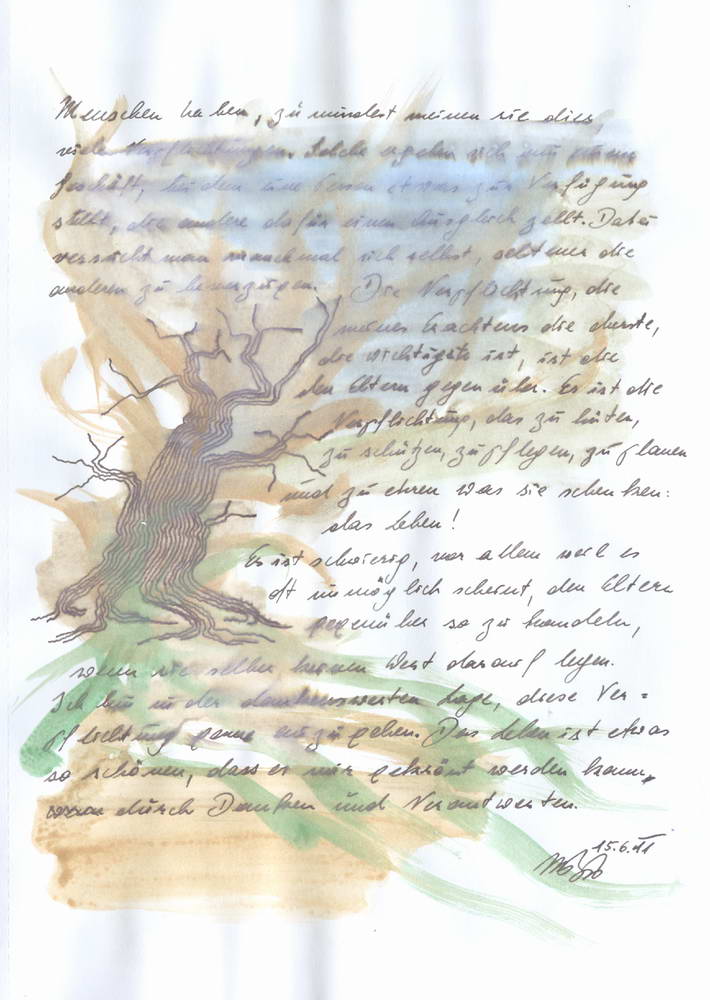 Menschen haben, zumindest meinen sie dies,
viele Verpflichtungen. Solche ergeben sich aus einem
Geschäft, bei dem eine Person etwas zur Verfügung
stellt, die andere dafür einen Ausgleich zollt. Dabei
versucht man manchmal sich selbst, seltener die
anderen zu bevorzugen. Die Verpflichtung, die
meines Erachtens die oberste,
die wichtigste ist, ist die
den Eltern gegenüber. Es ist die
Verpflichtung, das zu hüten,
zu schützen, zu pflegen, zu planen
und zu ehren was sie schenken:
das Leben!
Es ist schwierig, vor allem weil es
oft unmöglich scheint, den Eltern
gegenüber so zu handeln,
wenn sie selber keinen Wert darauf legen.
Ich bin in der dankenswerten Lage, diese Ver=
pflichtung gerne einzugehen. Das Leben ist etwas
so schönes, dass es nur gekrönt werden kann,
durch Danken und Verantworten.
15.6.11